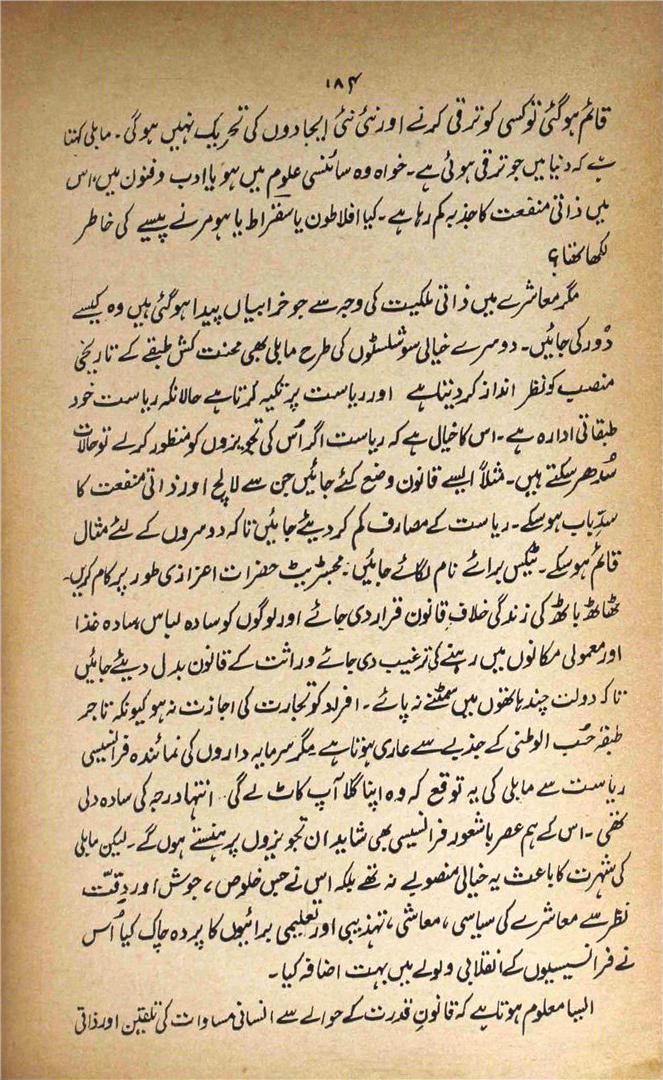 ۱۸۴
قائم ہو گئی تو کسی کو ترقی کرنے اور نئی نئی ایجادوں کی تحریک نہیں ہوگی۔ مابلی کہتا
ہے کہ دنیا میں جو ترقی ہوئی ہے۔ خواہ وہ سائنسی علوم میں ہو یا ادب و فنون میں، اس
میں ذاتی منفعت کا جذبہ کم رہا ہے۔ کیا افلاطون یا سقراط یا ہومر نے پیسے کی خاطر
لکھا تھا؟
مگر معاشرے میں ذاتی ملکیت کی وجہ سے جو خرابیاں پیدا ہو گئی ہیں وہ کیسے
دُور کی جائیں۔ دوسرے خیالی سوشلسٹوں کی طرح مابلی بھی محنت کش طبقے کے تاریخی
منصب کو نظر انداز کر دیتا ہے اور ریاست پر تکیہ کرتا ہے حالانکہ ریاست خود
طبقاتی ادارہ ہے۔ اس کا خیال ہے کہ ریاست اگر اُس کی تجویزوں کو منظور کر لے تو حالات
سُدھر سکتے ہیں۔ مثلاً ایسے قانون وضع کئے جائیں جن سے لالچ اور ذاتی منفعت کا
سدِّباب ہو سکے۔ ریاست کے مصارف کم کر دیئے جائیں تاکہ دوسروں کے لئے مثال
قائم ہو سکے۔ ٹیکس برائے نام لگائے جائیں۔ مجسٹریٹ حضرات اعزازی طور پر کام کریں۔
ٹھاٹھ باٹھ کی زندگی خلافِ قانون قرار دی جائے اور لوگوں کو سادہ لباس، سادہ غذا
اور معمولی مکانوں میں رہنے کی ترغیب دی جائے وراثت کے قانون بدل دیئے جائیں
تاکہ دولت چند ہاتھوں میں سمٹنے نہ پائے۔ افراد کو تجارت کی اجازت نہ ہو کیونکہ تاجر
طبقہ حُب الوطنی کے جذبے سے عاری ہوتا ہے مگر سرمایہ داروں کی نمائندہ فرانسیسی
ریاست سے مابلی کی یہ توقع کہ وہ اپنا گلا آپ کاٹ لے گی انتہا درجہ کی سادہ دلی
تھی۔ اس کے ہم عصر باشعور فرانسیسی بھی شاید ان تجویزوں پر ہنستے ہوں گے۔ لیکن مابلی
کی شہرت کا باعث یہ خیالی منصوبے نہ تھے بلکہ اس نے جس خلوص، جوش اور دِقّت
نظر سے معاشرے کی سیاسی، معاشی، تہذیبی اور تعلیمی برائیوں کا پردہ چاک کیا اُس
نے فرانسیسیوں کے انقلابی ولولے میں بہت اضافہ کیا۔
ایسا معلوم ہوتا ہے کہ قانونِ قدرت کے حوالے سے انسانی مساوات کی تلقین اور ذاتی